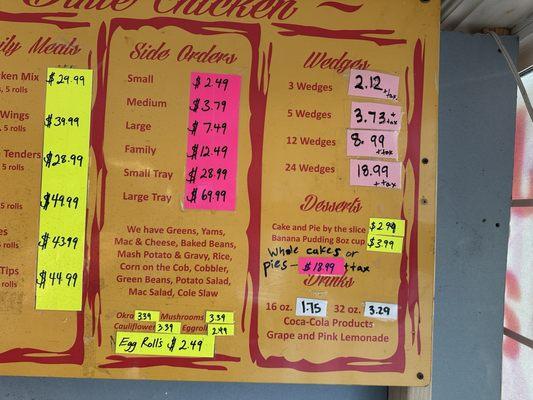 Chicken
ily Meals
ken Mix $29.99
s, 5 rolls
Wings $39.99
, 5 rolls
Tenders $28.99
5 rolls
$49.99
rolls
es $43.99
rolls
Tips $44.99
rolls
Side Orders
Small $2.49
Medium $3.79
Large $7.49
Family $12.49
Small Tray $28.99
Large Tray $69.99
We have Greens, Yams,
Mac & Cheese, Baked Beans,
Mash Potato & Gravy, Rice,
Corn on the Cob, Cobbler,
Green Beans, Potato Salad,
Mac Salad, Cole Slaw
Okra 3.39 Mushrooms 3.39
Cauliflower 3.39 Eggroll 2.49
Egg Rolls $2.49
Wedges
3 Wedges 2.12 + tax
5 Wedges 3.73 + tax
12 Wedges 8.99 + tax
24 Wedges 18.99 + tax
Desserts
Cake and Pie by the slice $2.99
Banana Pudding 8oz cup $3.99
Whole cakes or
pies - $18.99 + tax
Drinks
16 oz. 1.75 32 oz. 3.29
Coca-Cola Products
Grape and Pink Lemonade